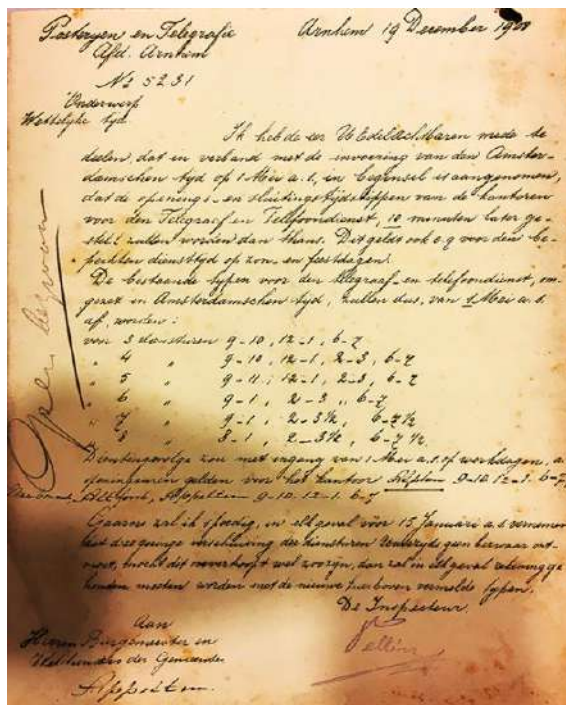 Posteryen en Telegrafie
Afd. Arnhem
Arnhem 19 December 19
No 5231
Onderwerp
Wettelyke tyd
Ik heb de eer UEdelachtbaren mede te
deelen, dat in verband met de invoering van den Amster-
damschen tyd op 1 Mei a.s., in beginsel is aangenomen,
dat de openings- en sluitingstydstippen van de kantoren
voor den Telegraaf en Telefoondienst, 10 minuten later ge-
steld zullen worden dan thans. Dit geldt ook e.g. voor den be-
perkten diensttyd op zon- en feestdagen.
De bestaande typen voor den telegraaf- en telefoondienst, om-
gezet in Amsterdamschen tyd, zullen dus, van 1 Mei a.s.
af, worden:
van 3 diensturen 9-10, 12-1, 6-7
" 4 " 9-10, 12-1, 2-3, 6-7
" 5 " 9-11, 12-1, 2-3, 6-7
" 6 " 9-1, 2-3, 6-7
" 7 " 9-1, 2-3½, 6-7½
" 8 " 8-1, 2-3½, 6-7½
Dientengevolge zou met ingang van 1 Mei a.s. op werkdagen, a.
openingsuren gelden voor het kantoor 9-10. 12-1. 6-7,
Appeltern 9-10. 12-1. 6-7
Gaarne zal ik spoedig, in elk geval vóór 15 Januari a.s. vernemen
dat deze geringe verschuiving der diensturen Uwerzyds geen bezwaar ont-
moet, mocht dit onverhoopt wel zoo zyn, dan zal in elk geval rekening ge
houden moeten worden met de nieuwe hierboven vermelde typen.
De Inspecteur.
Aan
Heeren Burgemeester en
Wethouders der Gemeente
Appeltern.